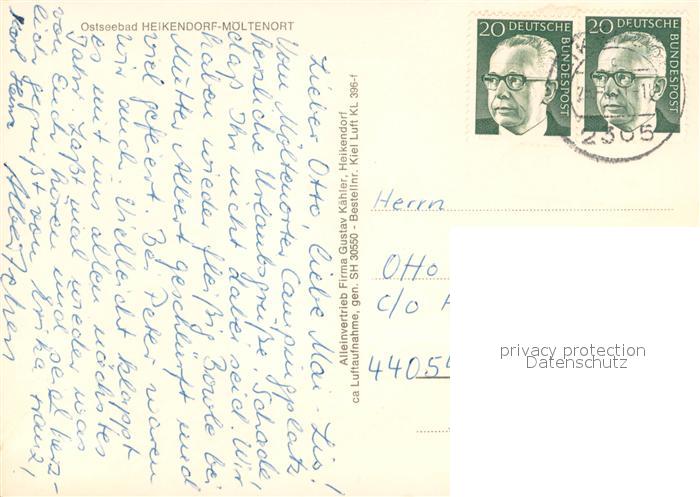 Ostseebad HEIKENDORF-MÖLTENORT
Lieber Otto, liebe Mai-Lis!
Vom Möltenorter Campingplatz
herzliche Urlaubsgrüße. Schade,
daß Ihr nicht dabei seid. Wir
haben wieder fleißig Bowle bei
Mutter Albert geschlürft und
viel gefeiert. Bei Peter waren
wir auch. Vielleicht klappt
es mit uns allen nächstes
Jahr. Laßt mal wieder was
von Euch hören und seid herz-
lich gegrüßt von Erika, Franz,
Karl Heinz
Alleinvertrieb Firma Gustav Kähler, Heikendorf
ca Luftaufnahme, gen. SH 30550 - Bestellnr. Kiel Luft KL 396-f
20 DEUTSCHE BUNDESPOST
20 DEUTSCHE BUNDESPOST
2305
Herrn
Otto
c/o
44054
privacy protection
Datenschutz